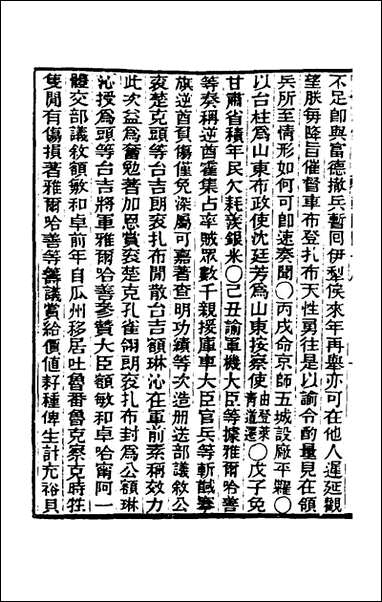 不足卽與富德撤兵暫回伊犁俟來年再舉亦可在他人遲延觀
望朕每降旨催督車布登扎布天性勇往是以諭令酌量見在領
兵所至情形如何可卽速奏聞〇丙戌命京師五城設廠平糶〇
以台柱爲山東布政使沈廷芳爲山東按察使由登萊青道遷〇戊子免
甘肅省積年民欠耗羨銀米〇己丑諭軍機大臣等據雅爾哈善
等奏稱逆酋霍集占率賊眾數千親援庫車大臣官兵等斬馘搴
旗逆酋負傷僅免深屬可嘉著查明功績等次造册送部議敘公
袞楚克頭等台吉朗袞扎布閒散台吉額琳沁在軍前素稱效力
此次益爲奮勉著加恩賞袞楚克孔雀翎朗袞扎布封爲公額琳
沁授爲頭等台吉將軍雅爾哈善參贊大臣額敏和卓哈甯阿一
體交部議敘額敏和卓前年自瓜州移居吐魯番魯克察克時牲
隻閒有傷損著雅爾哈善等籌議賞給價値耔種俾生計充裕貝